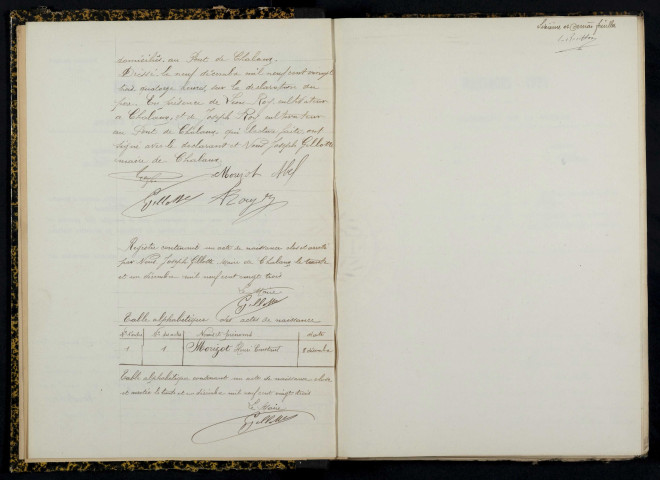 domiciliés au Pont de Chalaux.
Dressé le neuf décembre mil neuf cent vingt
trois quatorze heures, sur la déclaration du
père. En présence de Léon Roy, cultivateur
à Chalaux, et de Joseph Roy cultivateur
au Pont de Chalaux, qui lecture faite ont
signé avec le déclarant et Nous Joseph Gillotte
maire de Chalaux.
Morizot Abel
Gillotte Roy
Registre contenant un acte de naissance clos et arrêté
par Nous Joseph Gillotte maire de Chalaux le trente
et un décembre mil neuf cent vingt trois
Le Maire
Gillotte
Table alphabétique des actes de naissance
Nos Noms et Prénoms date
1 1 Morizot décembre
Table alphabétique contenant un acte de naissance close
et arrêtée le trente et un décembre mil neuf cent vingt trois
Le Maire
Gillotte
et dernier feuillet